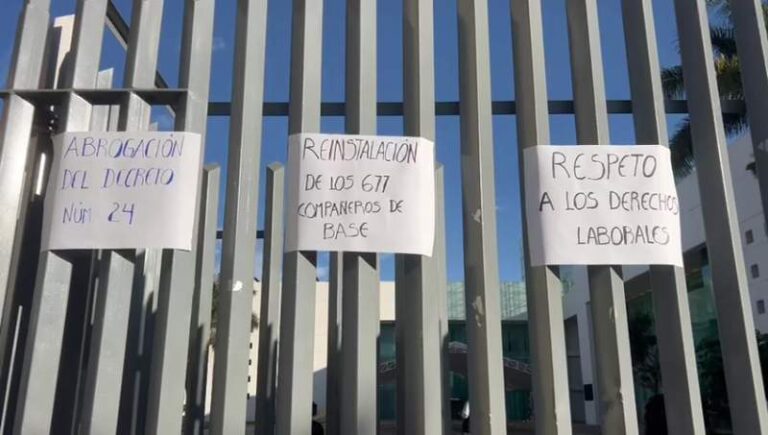 ABROGACIÓN
DEL DECRETO
NÚM 24
REINSTALACIÓN
DE LOS 677
COMPAÑEROS DE
BASE
RESPETO
A LOS DERECHOS
LABORALES